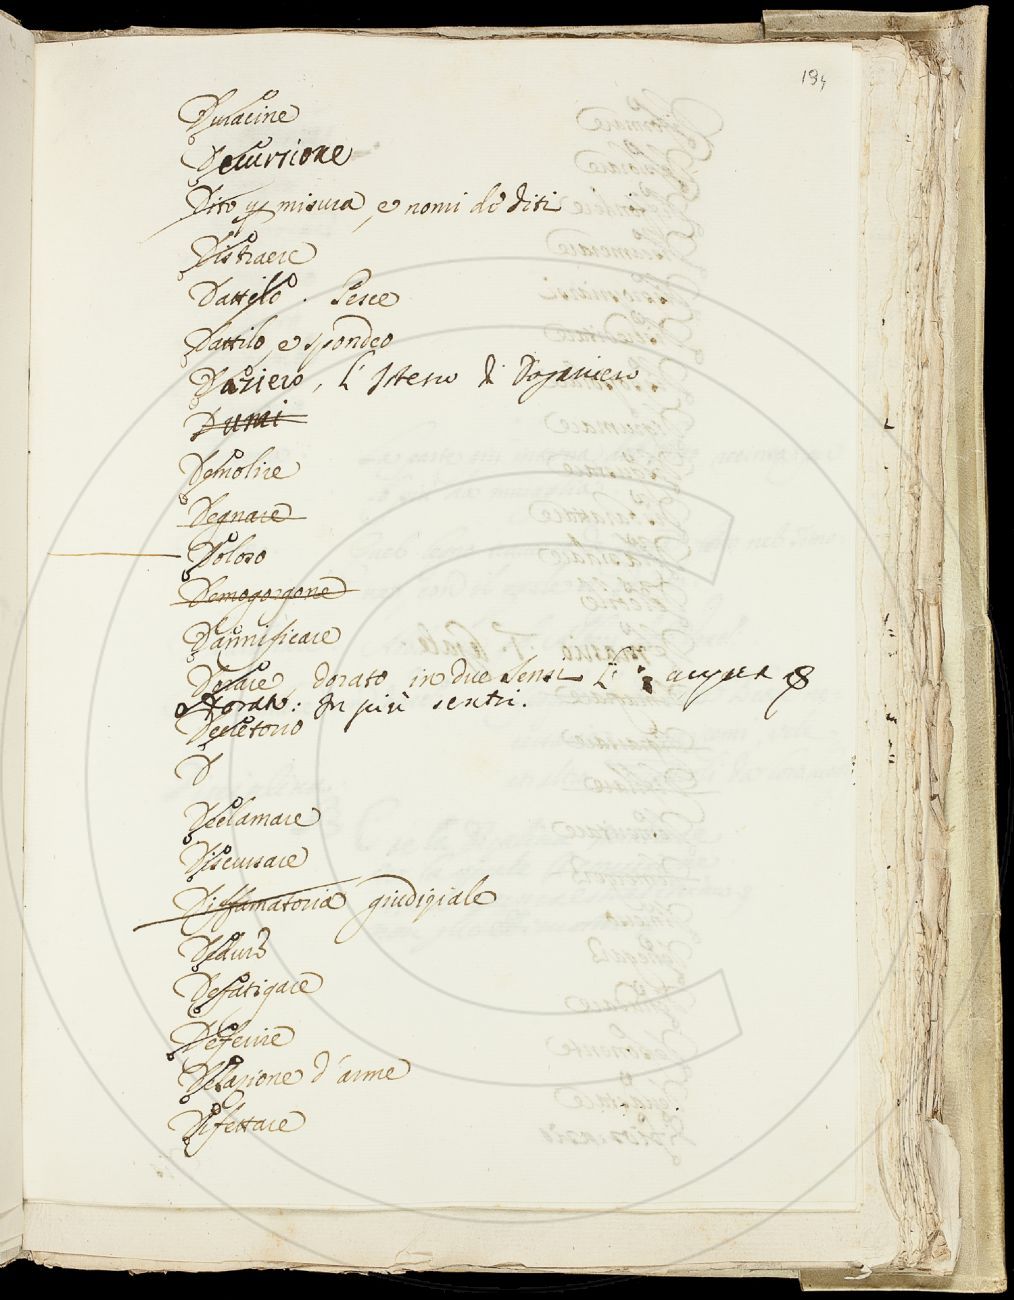 184
Duracine
Decursione
Dito p misura, e nomi de diti
Distraere
Dattilo. Pesce
Dattilo, e spondeo
Daziero, L'istesso di Doganiero
Dumi
Demolire
Degnare
Doloso
Demogorgone
Dannificare
Dorare, dorato in due sensi L'
Dorato: In più sentri.
Decretorio
D
Declamare
Discusare
Diffamatoria giudiziale
Defatigare
Deferire
Delazione d'arme
Difettare